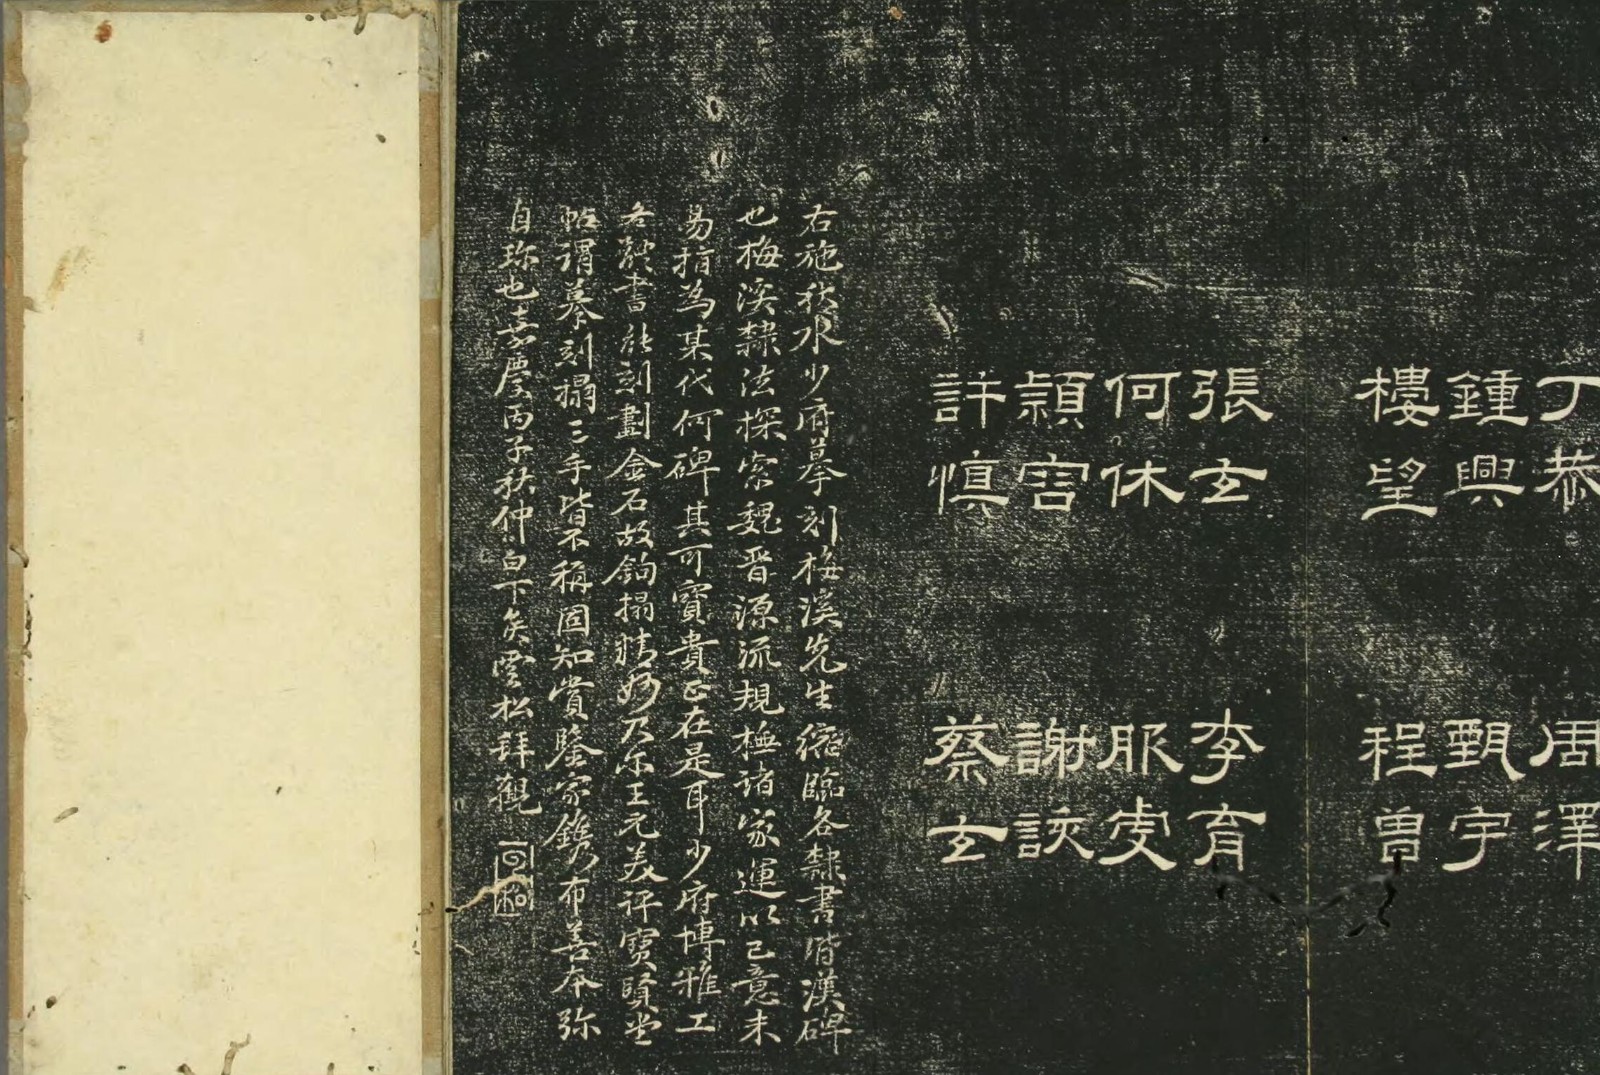 丁恭
周澤
鍾興
甄宇
樓望
程曾
張玄
李育
何休
服虔
潁容
謝該
許慎
蔡玄
右施秋水少府摹刻梅溪先生縮臨各隸書階漢碑
也梅溪隸法探索魏晉源流規橅諸家運以己意未
易指為某代何碑其可寶貴正在是耳少府博雅工
各體書能刻劃金石故鉤搨精妙乃爾王元美評寶賢堂
帖謂摹刻搨三手皆不稱固知賞鑒家鐫布善本弥
自珎也嘉慶丙子秋仲白下矦雲松拜觀